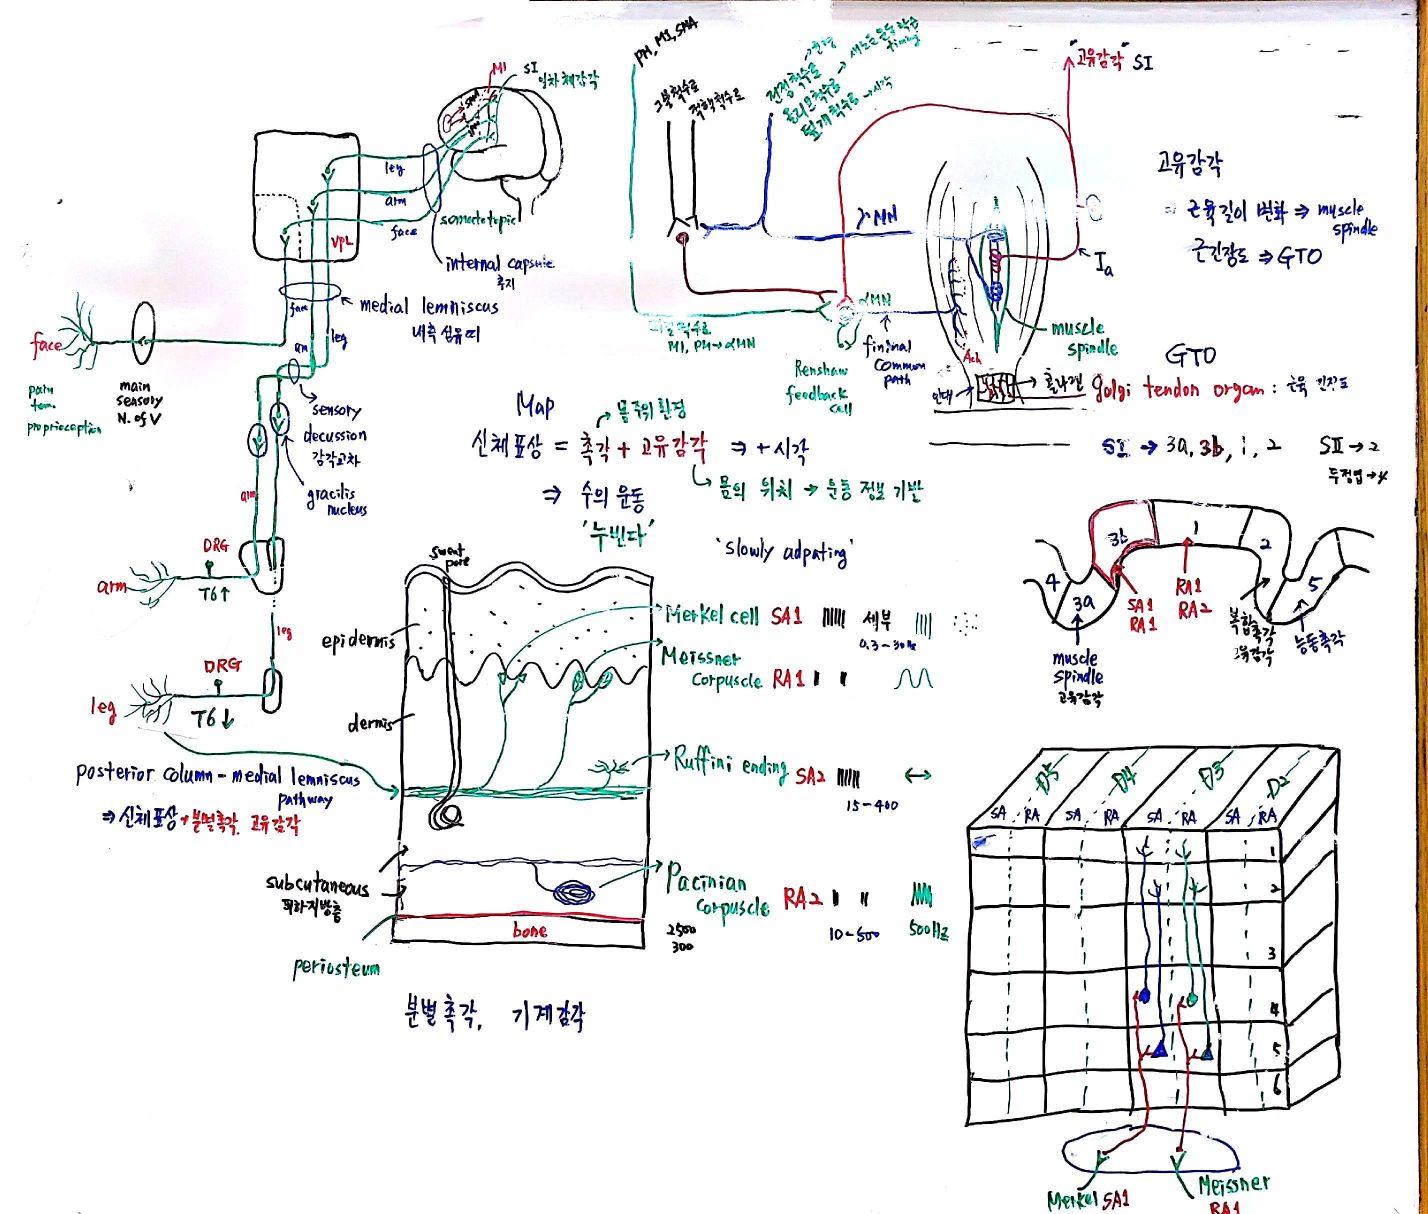 MI
SI
일차체감각
leg
arm
face
somatotopic
VPL
internal capsule
medial lemniscus
내측섬유띠
face
arm
leg
face
pain
tem.
proprioception
main
sensory
N. of V
sensory
decussion
감각교차
gracilis
nucleus
arm
DRG
arm
T6↑
leg
DRG
leg
T6↓
posterior column - medial lemniscus
pathway
⇒ 신체표상 + 분별촉각, 고유감각
PM, M1, SMA
그물척수로
적핵척수로
전정척수로 → 균형
올리브척수로 → 새로운 운동 학습
timing
덮개척수로 → 시각
"고유감각" SI
γMN
Ia
αMN
피질척수로
M1, PM → αMN
Renshaw
feedback
cell
fininal
common
path
Ach
인대
muscle
spindle
GTO
콜라겐 golgi tendon organ : 근육 긴장도
고유감각
⇒ 근육길이 변화 ⇒ muscle
spindle
근긴장도 ⇒ GTO
Map
몸 주위 환경
신체표상 = 촉각 + 고유감각 ⇒ + 시각
몸의 위치 → 운동 정보 기반
⇒ 수의 운동
'누빈다'
'slowly adpating'
sweat
pore
epidermis
dermis
subcutaneous
피하지방층
periosteum
bone
Merkel cell SA1 세부
0.3-30Hz
Meissner
Corpuscle RA1
Ruffini ending SA2
15-400
Pacinian
Corpuscle RA2
2500
300
10-500
500Hz
분별촉각, 기계감각
SI → 3a, 3b, 1, 2
SII → 2
두정엽 → 4
4
3a
3b
1
2
5
SA1
RA1
RA1
RA2
muscle
spindle
고유감각
복합촉각
고유감각
능동촉각
D5 D4 D3 D2
SA RA SA RA SA RA SA RA
1
2
3
4
5
6
Merkel SA1
Meissner
RA1